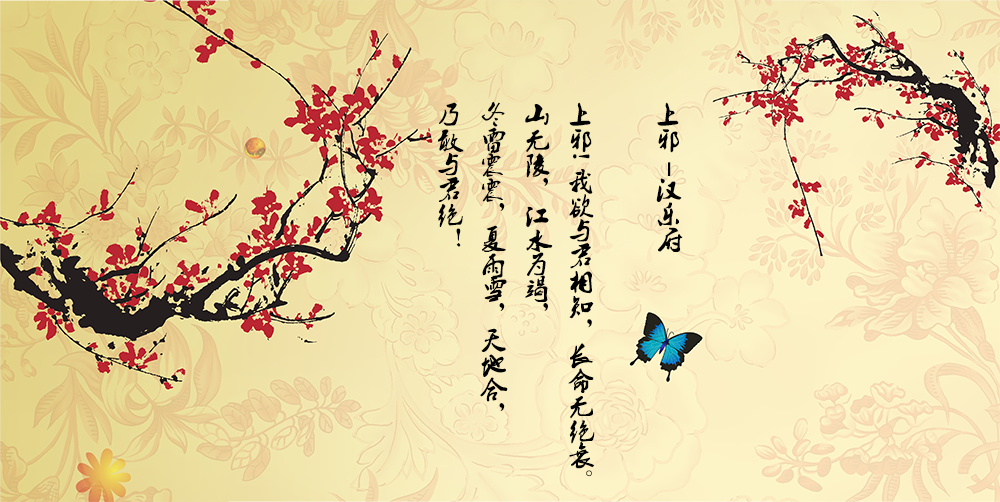 上邪 -汉乐府
上邪!我欲与君相知，长命无绝衰。
山无陵，江水为竭，
冬雷震震，夏雨雪，天地合，
乃敢与君绝！